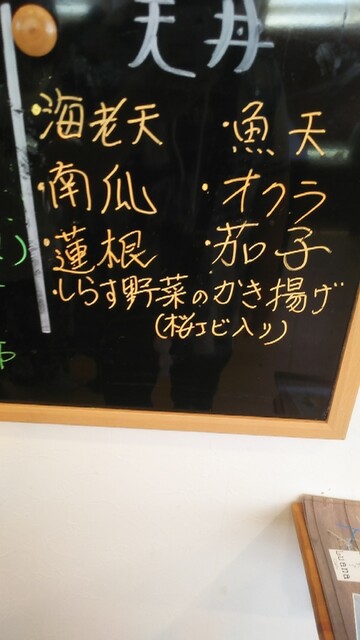 天丼
・海老天 ・魚天
・南瓜 ・オクラ
・蓮根 ・茄子
・しらす野菜のかき揚げ
(桜エビ入り)